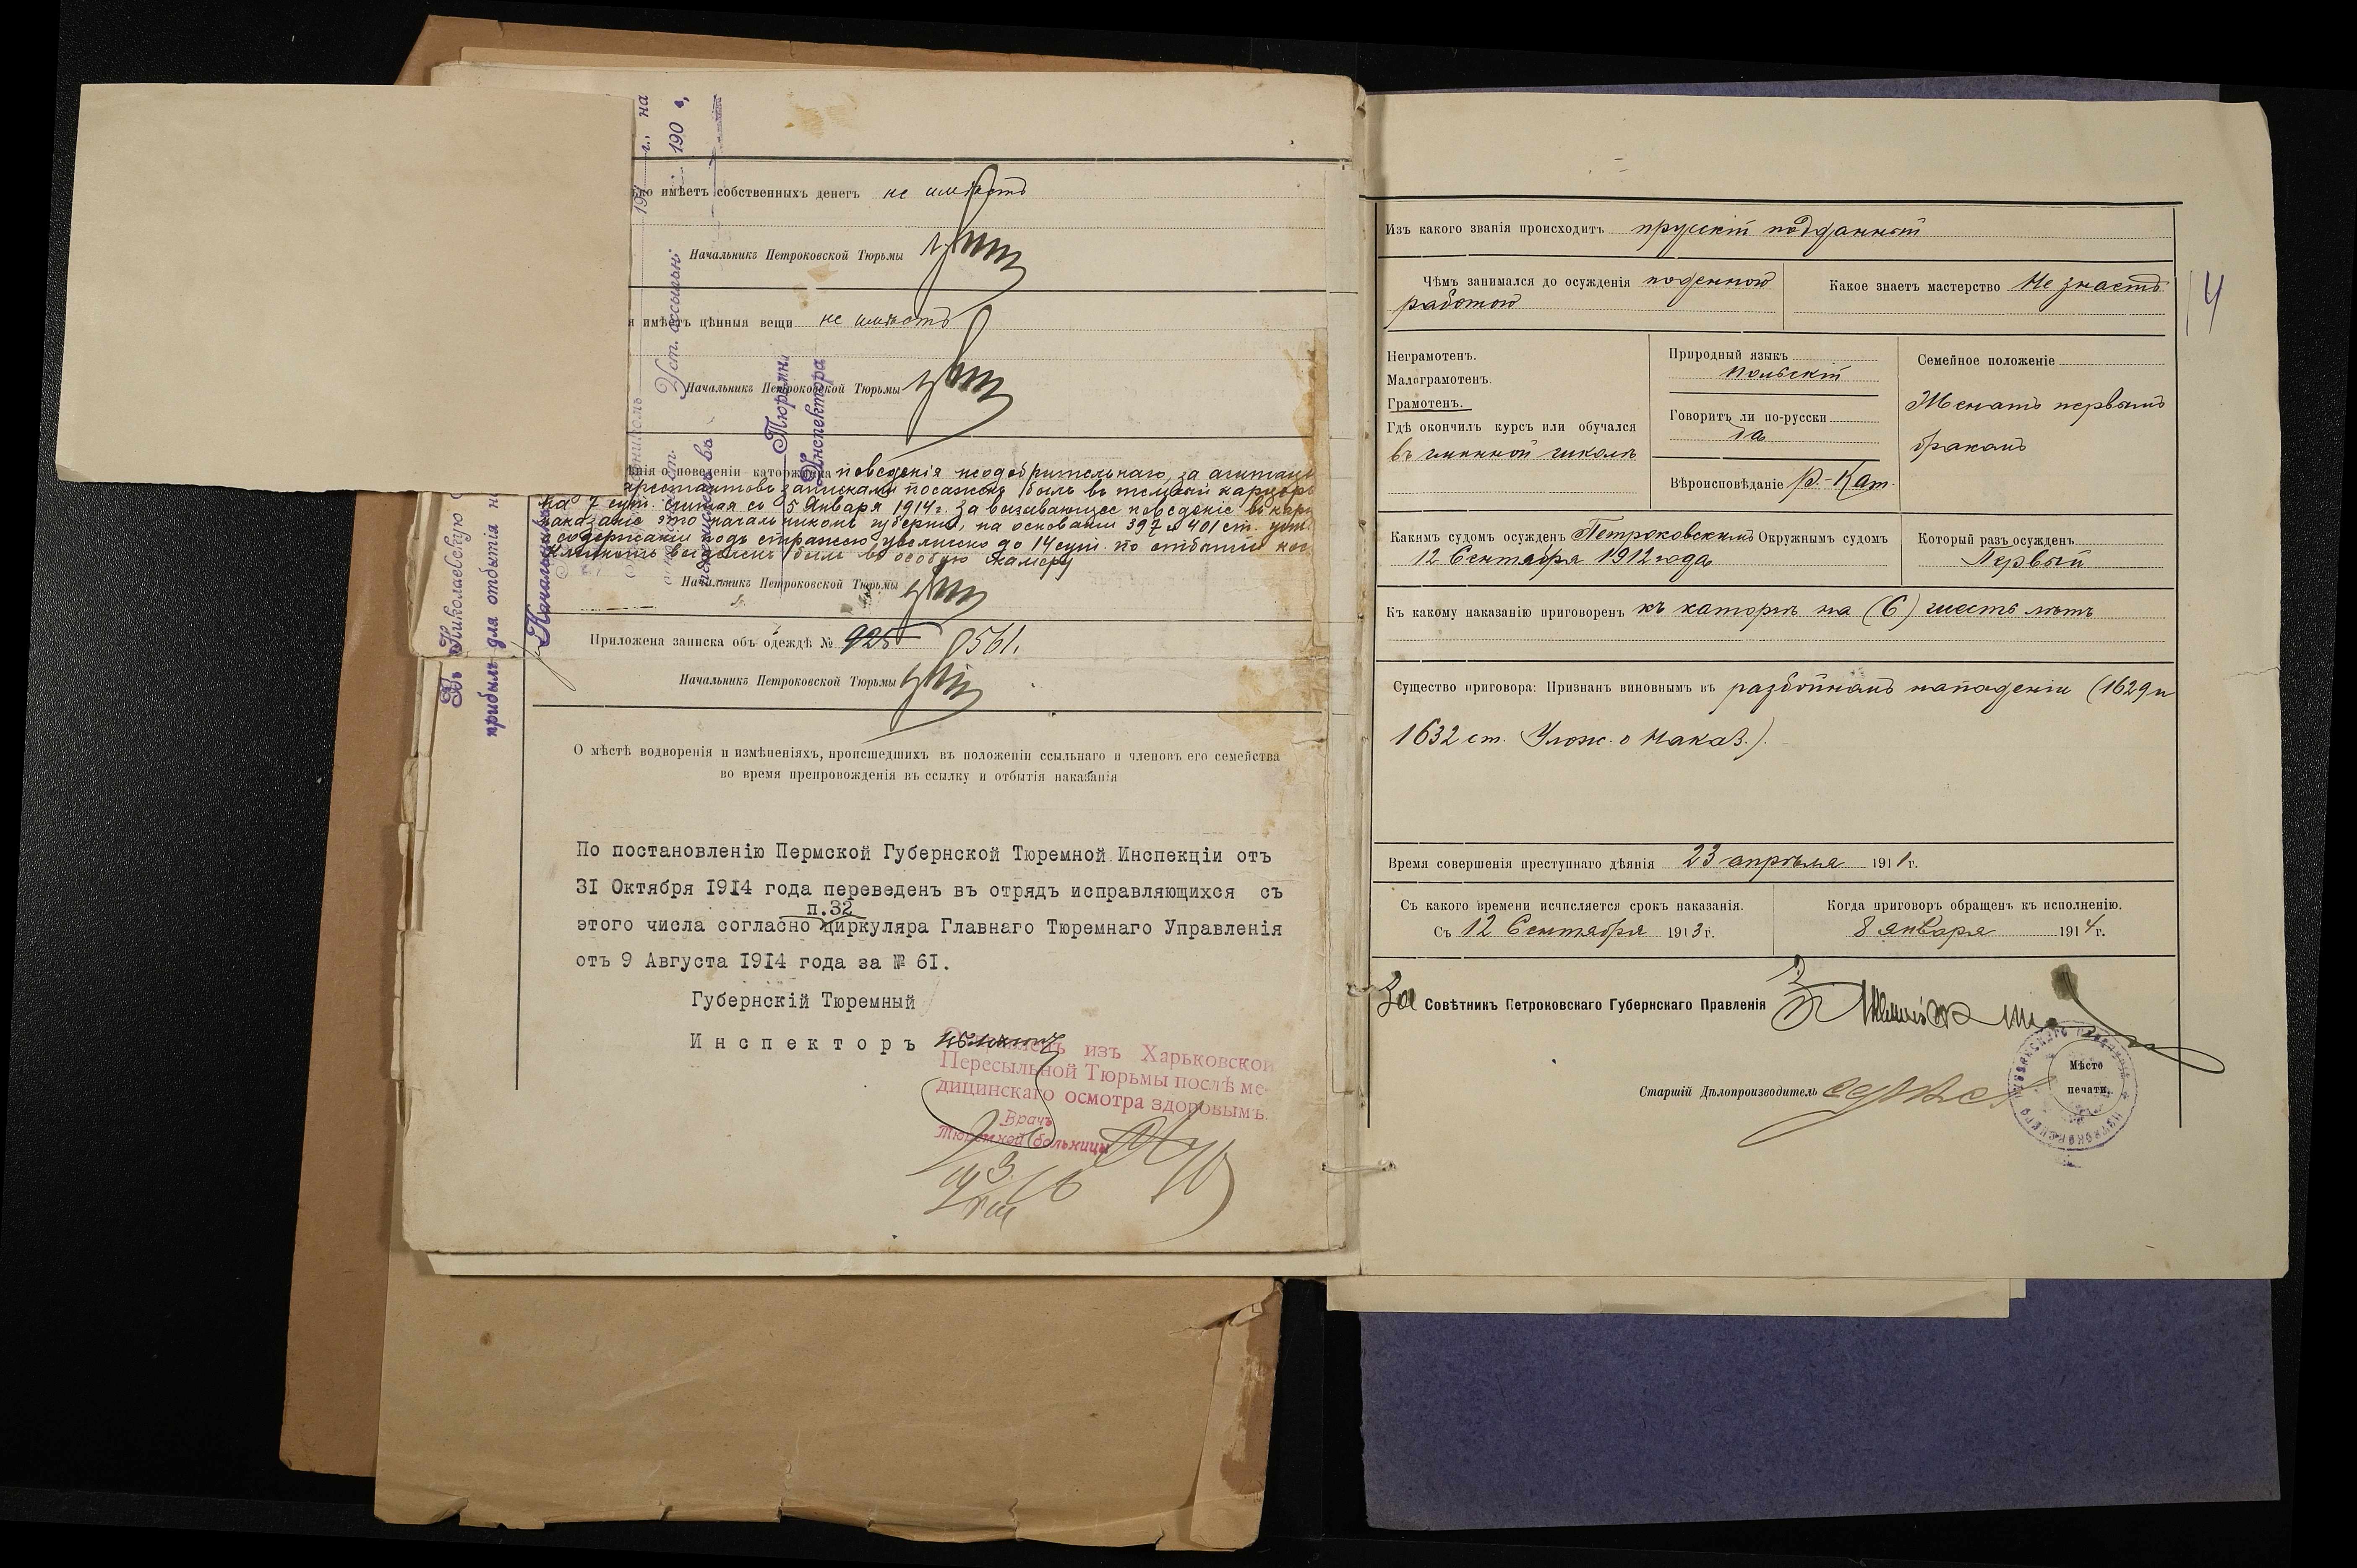 имѣетъ собственныхъ денегъ не имѣетъ
Начальникъ Петроковской Тюрьмы
имѣетъ цѣнныя вещи не имѣетъ
Начальникъ Петроковской Тюрьмы
о поведеніи каторжника поведенія неодобрительнаго, за агитацію
арестантовъ записками посаженъ былъ въ темный карцеръ
на 7 сут. считая съ 5 Января 1914 г. За вызывающее поведеніе въ
наказаніе это начальникомъ губерніи, на основаніи 397 и 401 ст. уст.
содержащ. подъ стражею увеличено до 14 сут. по отбытіи
былъ въ особую камеру
Начальникъ Петроковской Тюрьмы
Приложена записка объ одеждѣ № 925 561.
Начальникъ Петроковской Тюрьмы
О мѣстѣ водворенія и измѣненіяхъ, происшедшихъ въ положеніи ссыльнаго и членовъ его семейства
во время препровожденія въ ссылку и отбытія наказанія
По постановленію Пермской Губернской Тюремной Инспекціи отъ
31 Октября 1914 года переведенъ въ отрядъ исправляющихся съ
п.32
этого числа согласно циркуляра Главнаго Тюремнаго Управленія
отъ 9 Августа 1914 года за № 61.
Губернскій Тюремный
Инспекторъ
изъ Харьковской
Пересыльной Тюрьмы послѣ ме-
дицинскаго осмотра здоровымъ.
Врачъ
Тюремной больницы
Въ Николаевскую
прибылъ для отбытія
Начальникъ
191 г. на
190 г.
Уст. ссыльн.
Тюремн
Инспектора
14
Изъ какого званія происходитъ прусскій подданный
Чѣмъ занимался до осужденія поденной
работою
Какое знаетъ мастерство Не знаетъ
Неграмотенъ.
Малограмотенъ.
Грамотенъ.
Гдѣ окончилъ курсъ или обучался
въ школѣ
Природный языкъ
польскій
Говоритъ ли по-русски
да
Вѣроисповѣданіе Р.-Кат.
Семейное положеніе
Женатъ первымъ
бракомъ
Какимъ судомъ осужденъ Петроковскимъ Окружнымъ судомъ
12 Сентября 1912 года
Который разъ осужденъ
Первый
Къ какому наказанію приговоренъ къ каторгѣ на (6) шесть лѣтъ
Существо приговора: Признанъ виновнымъ въ разбойномъ нападеніи (1629 и
1632 ст. Улож. о Наказ.).
Время совершенія преступнаго дѣянія 23 апрѣля 1911 г.
Съ какого времени исчисляется срокъ наказанія.
Съ 12 Сентября 1913 г.
Когда приговоръ обращенъ къ исполненію.
8 января 1914 г.
За Совѣтникъ Петроковскаго Губернскаго Правленія
Старшій Дѣлопроизводитель
Мѣсто
печати.